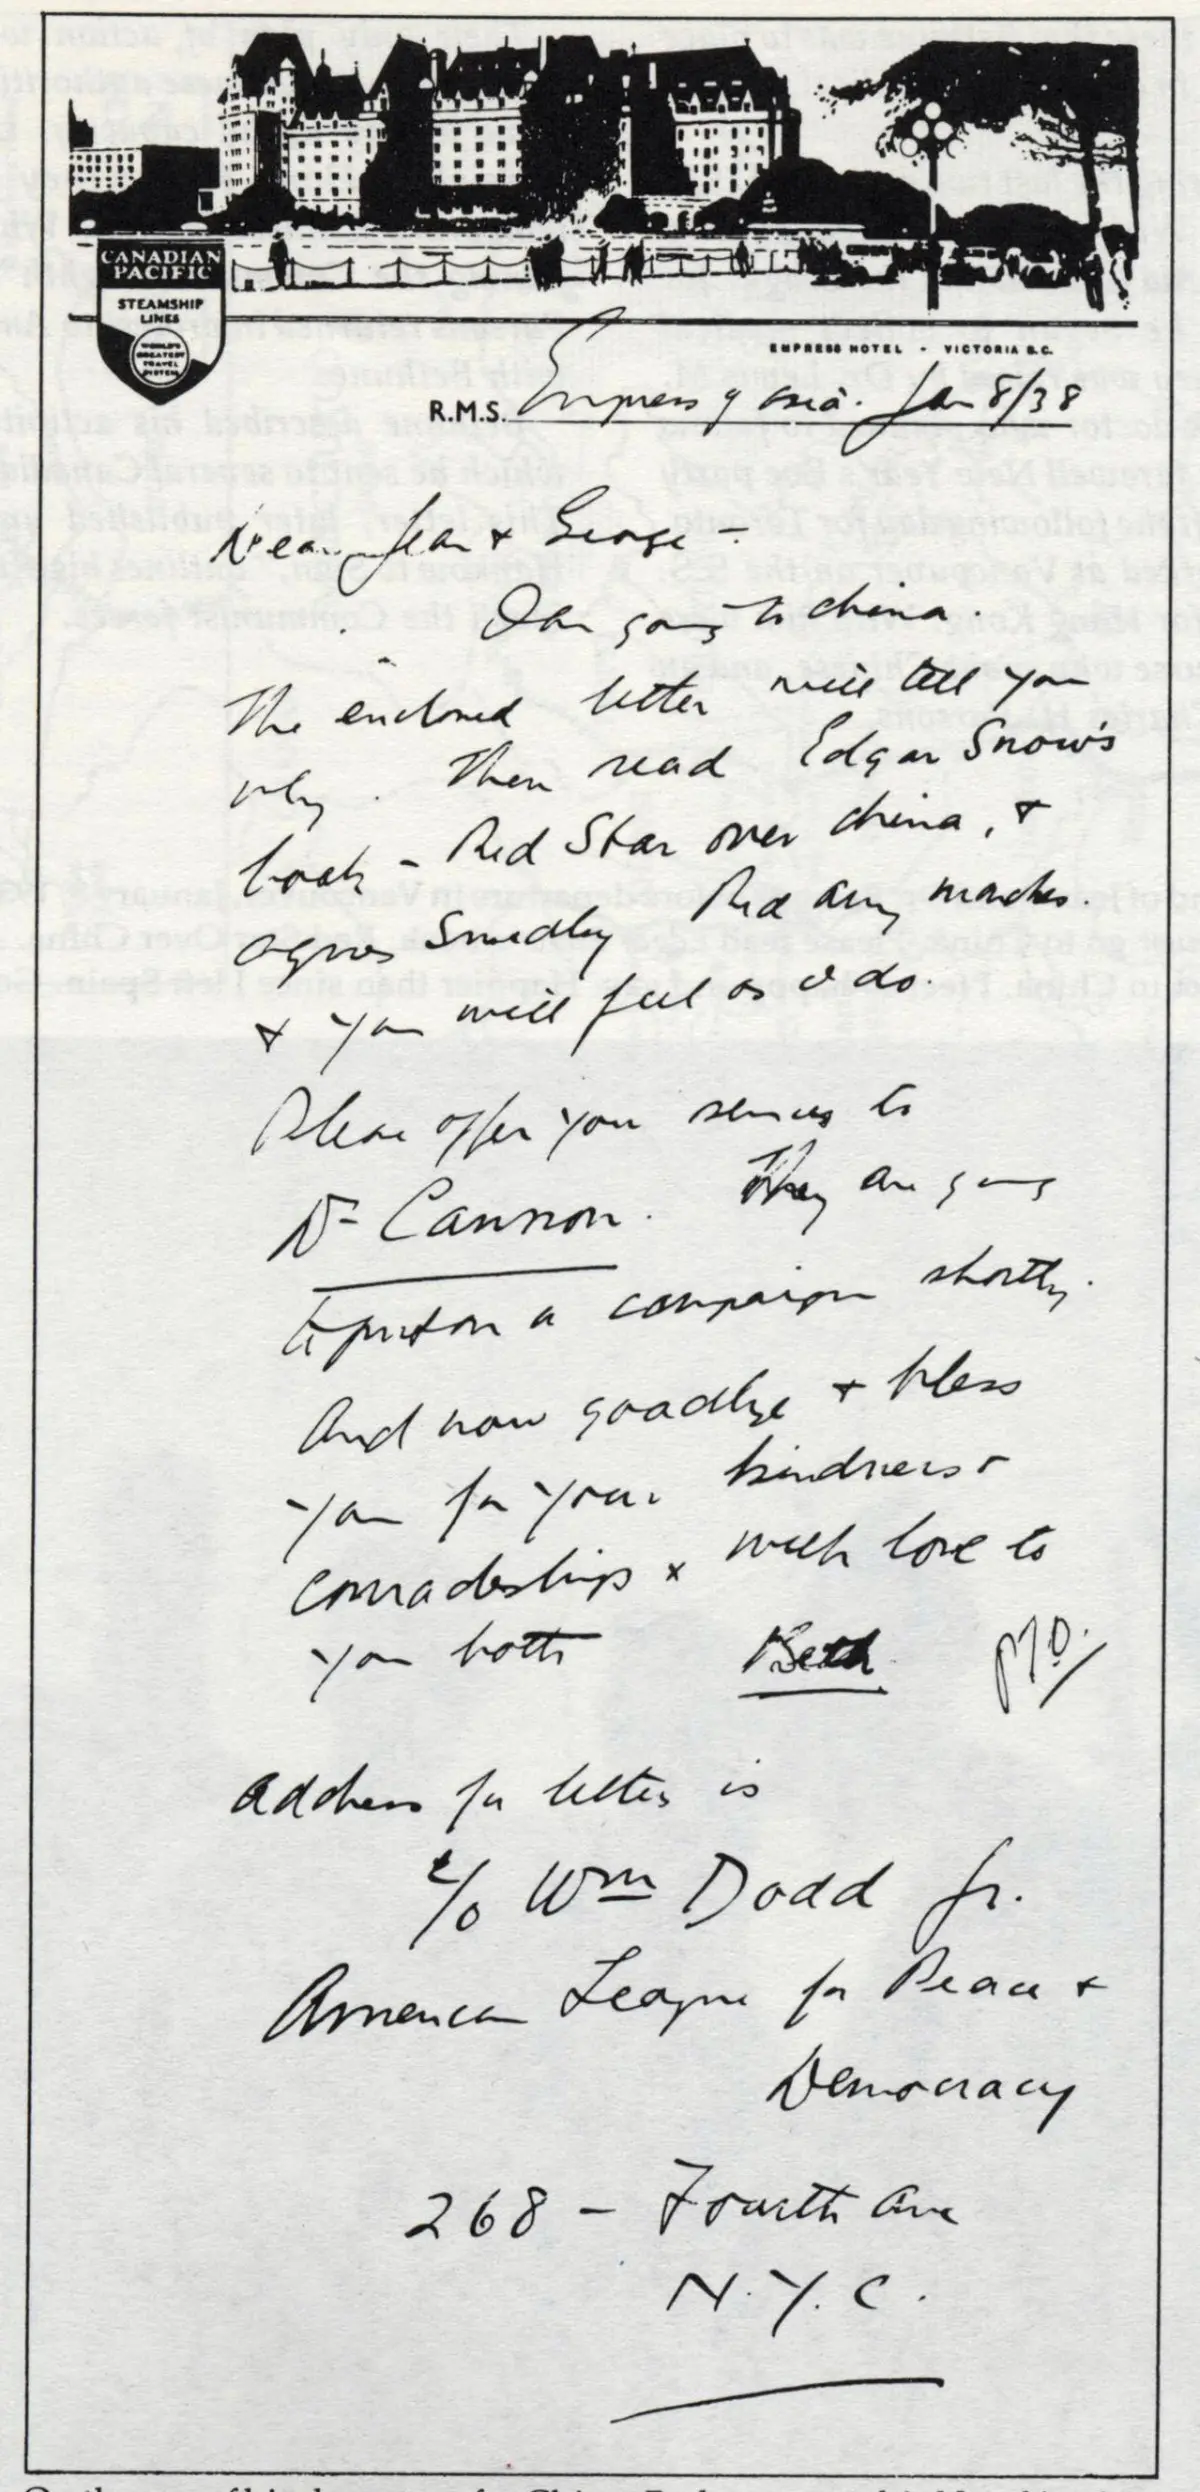 CANADIAN
PACIFIC
STEAMSHIP
LINES
WORLD'S
GREATEST
TRAVEL
SYSTEM
EMPRESS HOTEL - VICTORIA B.C.
R.M.S. Empress of Asia. Jan 8/38
Dear Jean + George -
I am going to China.
The enclosed letter will tell you
why. Then read Edgar Snow's
book - Red Star over China, +
Agnes Smedley Red Army marches.
+ you will feel as I do.
Please offer your services to
Dr Cannon. They are going
to put on a campaign shortly.
And now goodbye + bless
you for your kindness +
comradeship + with love to
you both Beth P.T.O.
Address for letters is
c/o Wm Dodd Jr.
American League for Peace +
Democracy
268 - Fourth Ave
N.Y.C.